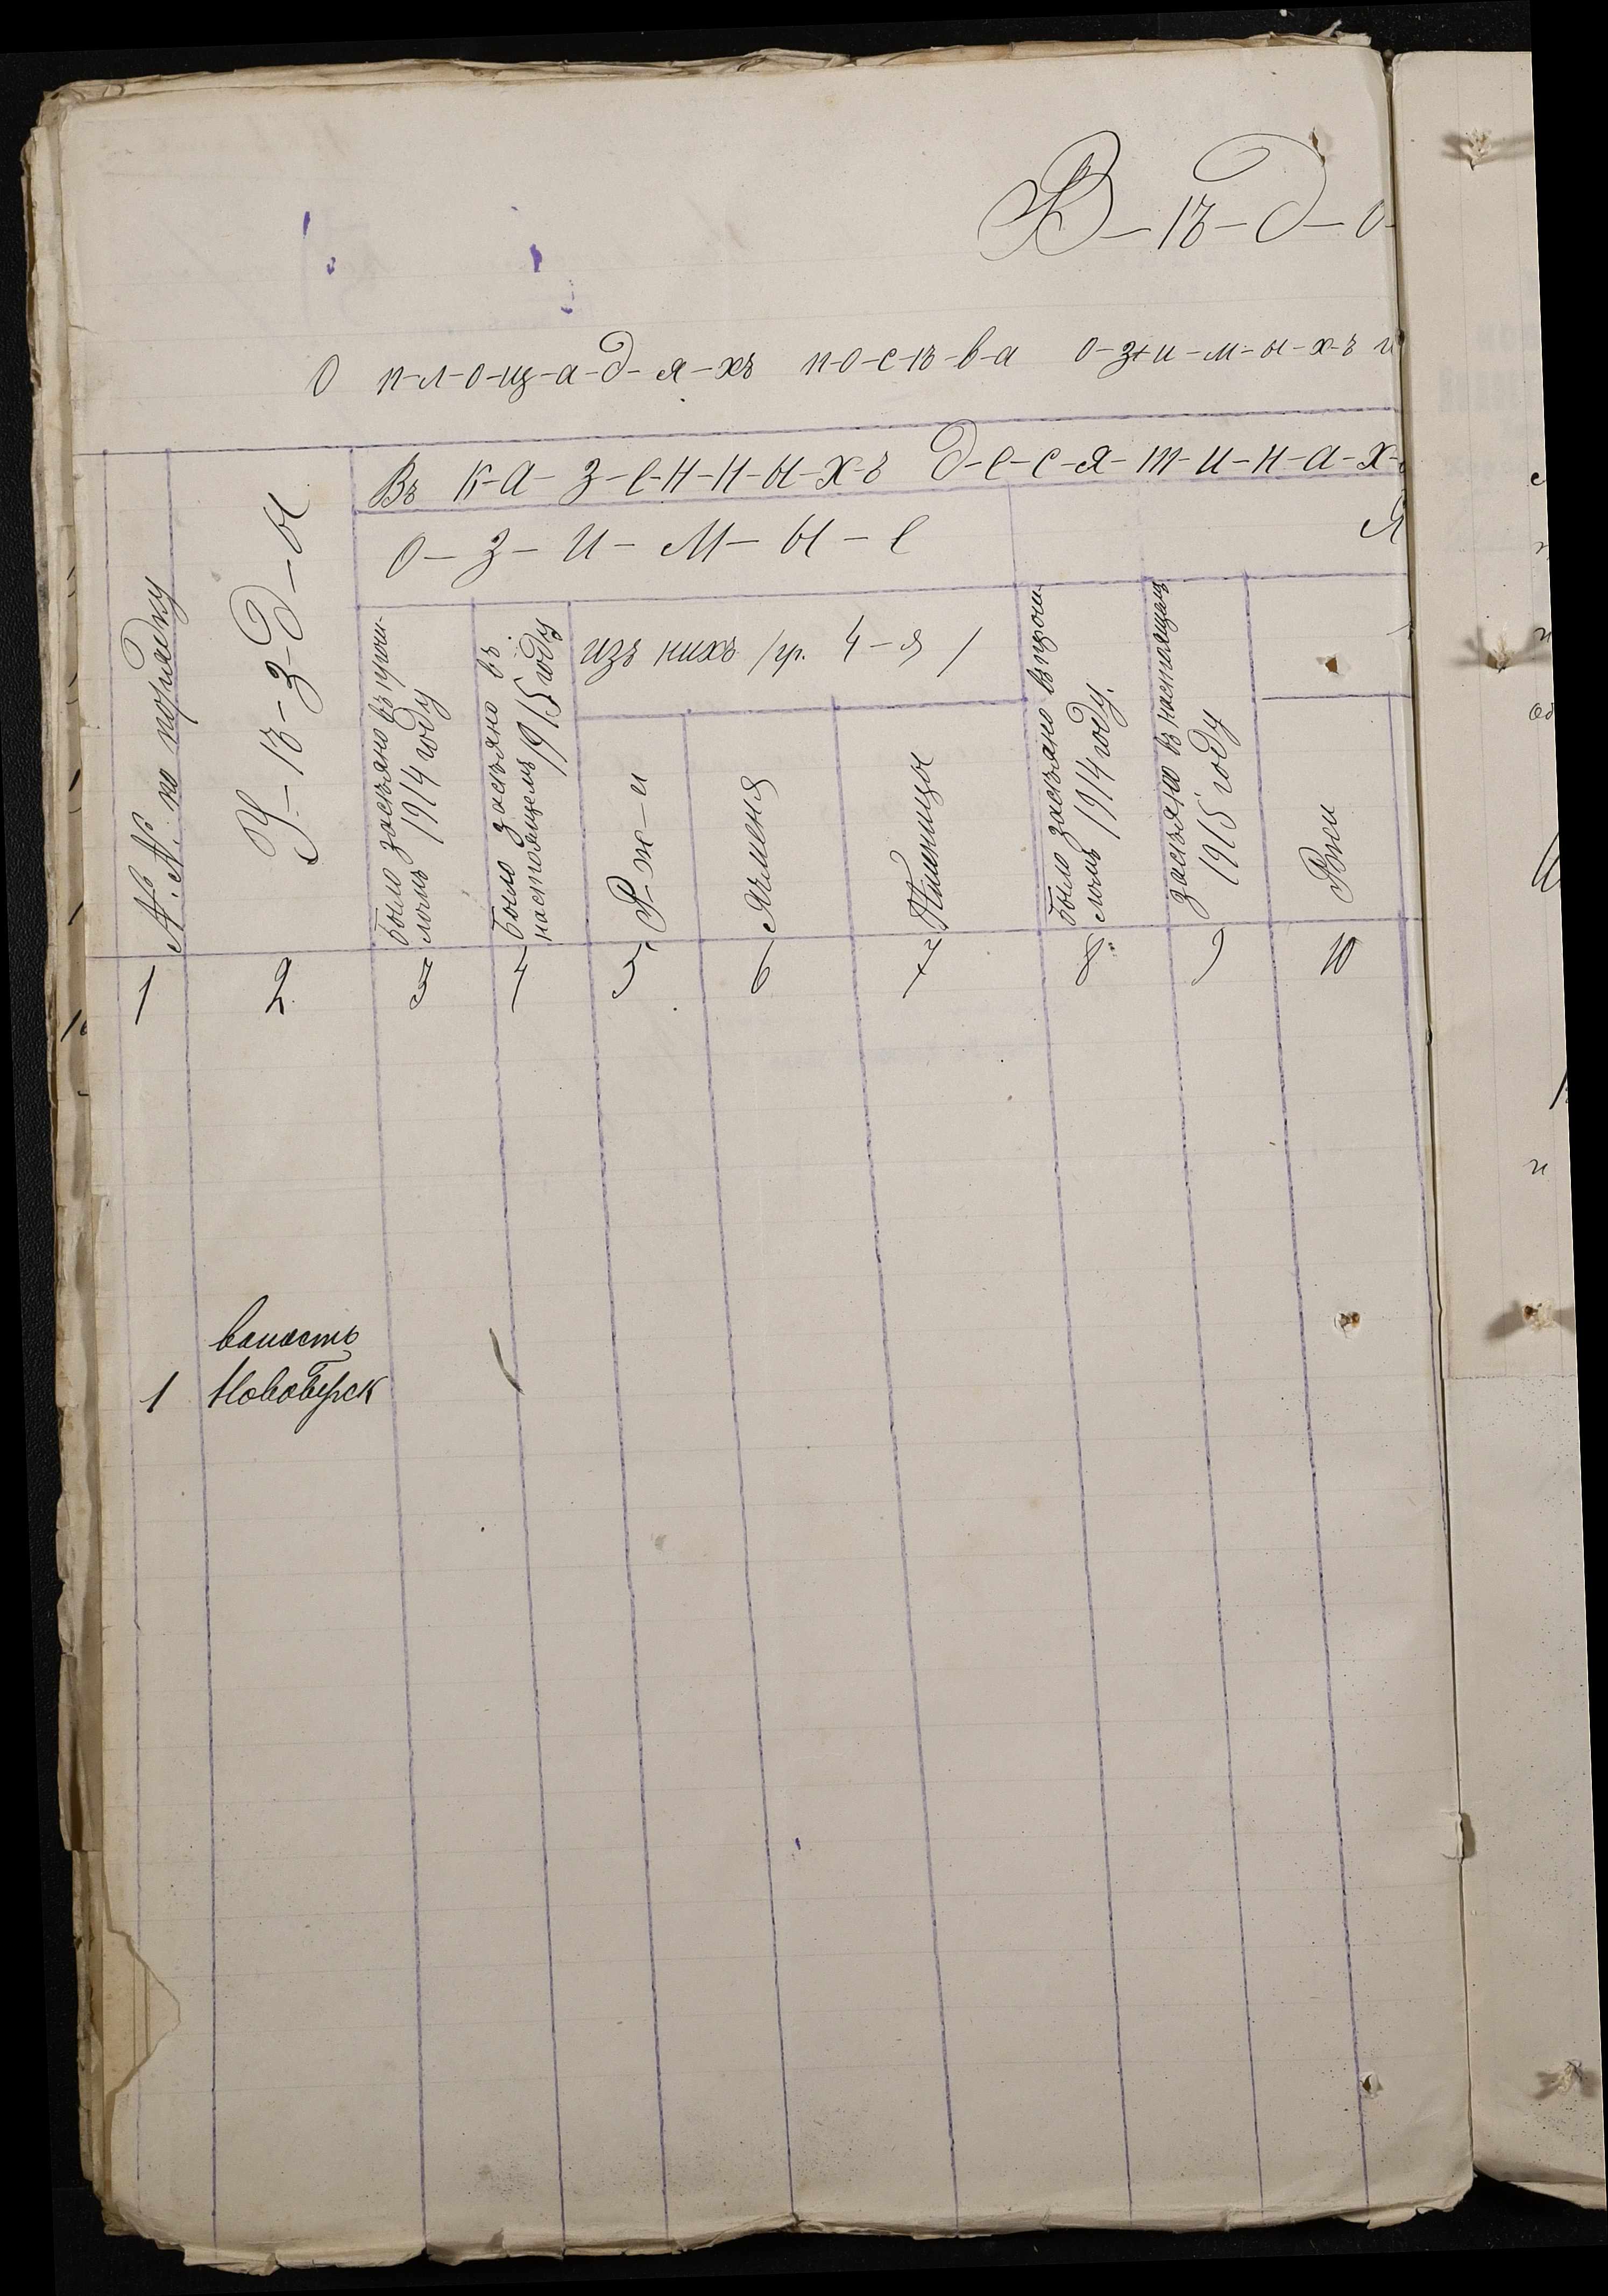 В-ѣ-д-о-
О п-л-о-щ-а-д-я-хъ п-о-с-ѣ-в-а о-з-и-м-ы-х-ъ и
Въ к-а-з-е-н-н-ы-х-ъ д-е-с-я-т-и-н-а-х-
о-з-и-м-ы-е
Я
№.№. по порядку
У-ѣ-з-д-ы
было засѣяно въ прош-
ломъ 1914 году
было засѣяно въ
настоящемъ 1915 году
изъ нихъ /гр. 4-я/
Р-ж-и
Ячменя
Пшеницы
было засѣяно въ прош-
ломъ 1914 году.
засѣяно въ настоящемъ
1915 году
Ржи
1 2 3 4 5 6 7 8 9 10
волость
1